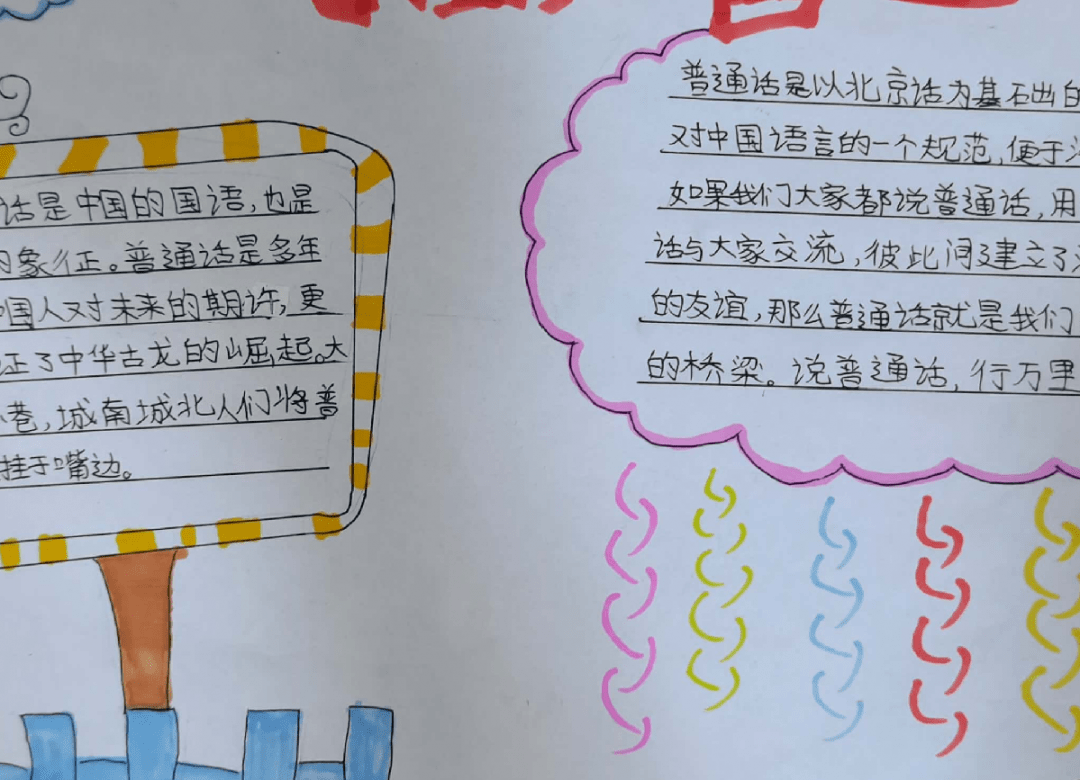 话是中国的国语,也是
象征。普通话是多年
国人对未来的期许,更
证了中华古龙的崛起。大
巷,城南城北人们将普
挂于嘴边。
普通话是以北京话为基础的
对中国语言的一个规范,便于
如果我们大家都说普通话,用
话与大家交流,彼此间建立了
的友谊,那么普通话就是我们
的桥梁。说普通话,行万里